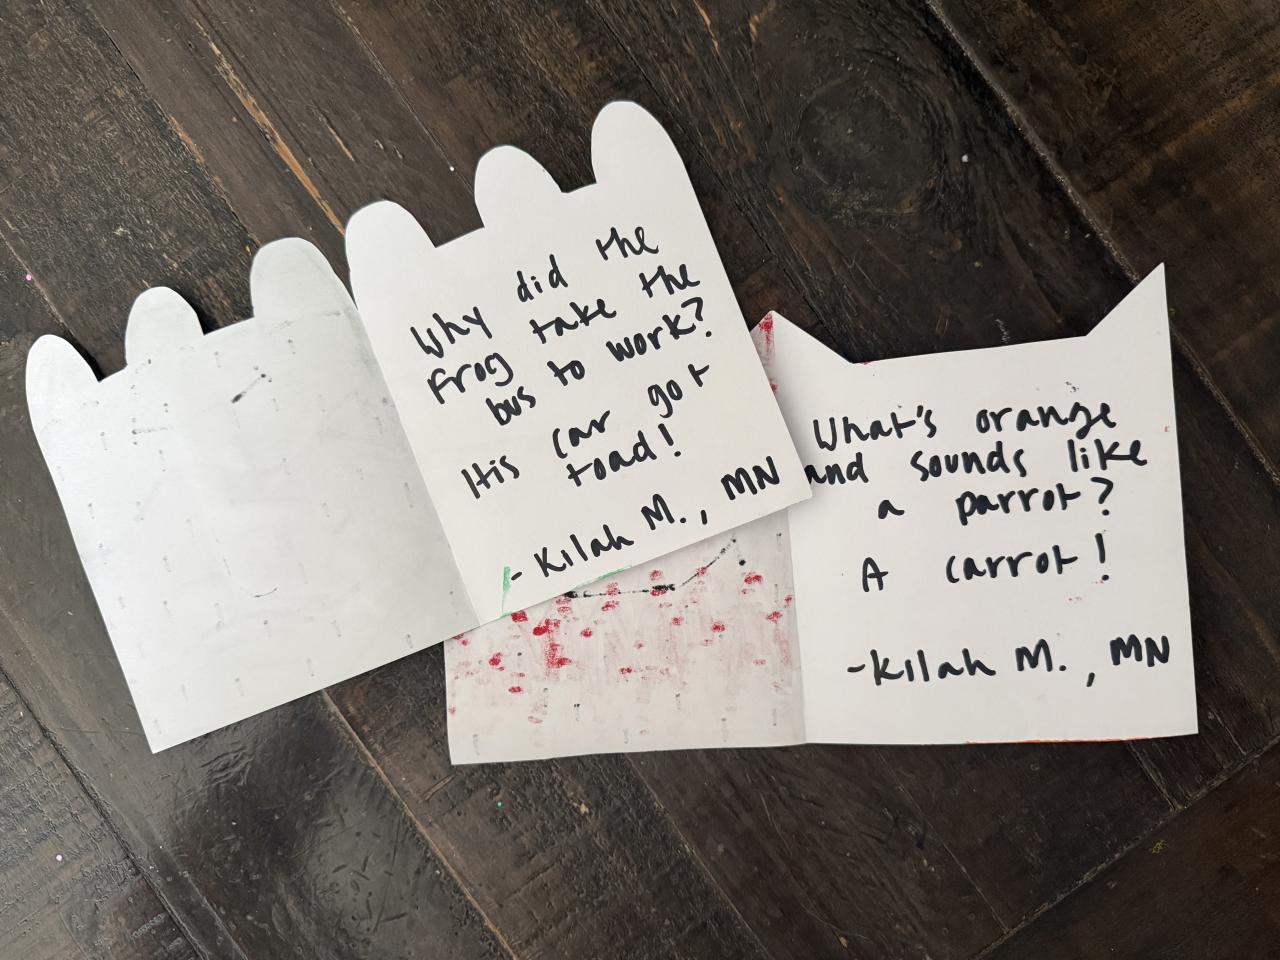 Why did the
frog take the
bus to work?
His car got
toad!
-Kilah M., MN
What's orange
and sounds like
a parrot?
A carrot!
-Kilah M., MN